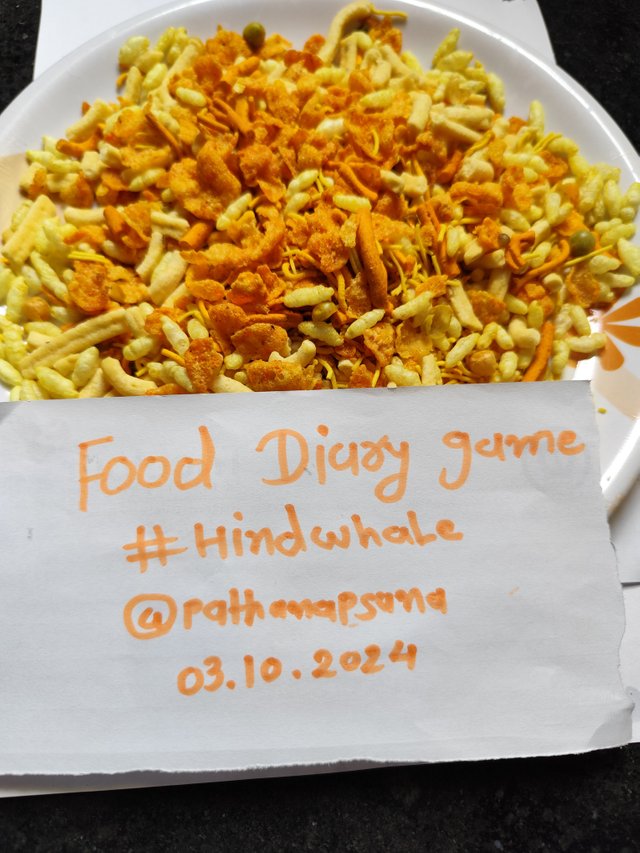 Food Diary game
#Hindwhale
@pathanapsana
03.10.2024